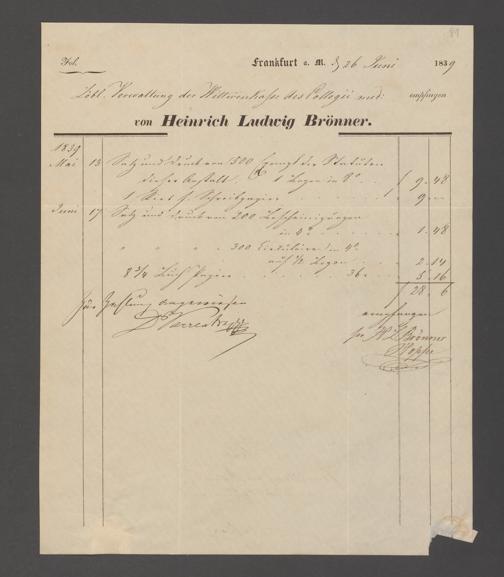 84
Fol.
Frankfurt a. M. d 26 Juni 1839
Löbl. Verwaltung der Wittwenkasse des Collegii med: empfingen
von Heinrich Ludwig Brönner.
1839
Mai 13 Satz und Druck von 300 Exempl der Statuten
dieser Anstalt. 1 Bogen in 8° f 9.48
1 Ries f. Schreibpapier 9.—
Juni 17 Satz und Druck von 200 Bescheinigungen
in 4° 1.48
" " " 300 Circulaire in 4°
auf ½ Bogen 2.14
8 3/4 Buch Papier 36 5.16
f 28.6
Zur Zahlung angewiesen
empfangen
pr H L Brönner